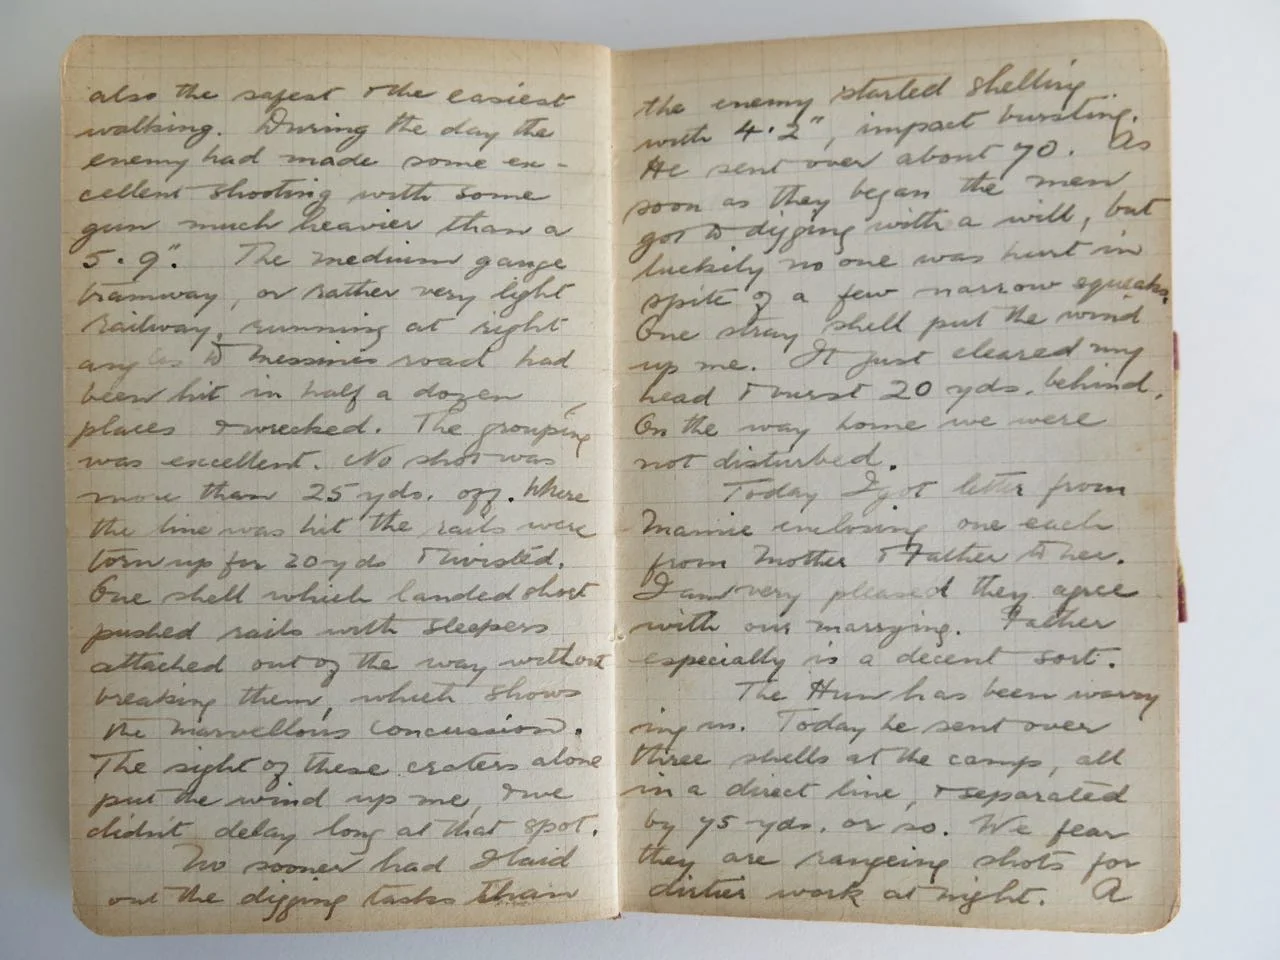 also the safest & the easiest
walking. During the day the
enemy had made some ex-
cellent shooting with some
gun much heavier than a
5.9". The medium gauge
tramway, or rather very light
railway, running at right
angles to Messines road had
been hit in half a dozen
places & wrecked. The grouping
was excellent. No shot was
more than 25 yds. off. Where
the line was hit the rails were
torn up for 20 yds & twisted.
One shell which landed short
pushed rails with sleepers
attached out of the way without
breaking them, which shows
the marvellous concussion.
The sight of these craters alone
put the wind up me, & we
didn't delay long at that spot.
No sooner had I laid
out the digging tasks than
the enemy started shelling
with 4.2", impact bursting.
He sent over about 70. As
soon as they began the men
got to digging with a will, but
luckily no one was hurt in
spite of a few narrow squeaks.
One stray shell put the wind
up me. It just cleared my
head & burst 20 yds. behind.
On the way home we were
not disturbed.
Today I got letter from
Mamie enclosing one each
from Mother & Father to her.
I am very pleased they agree
with our marrying. Father
especially is a decent sort.
The Hun has been worry
ing us. Today he sent over
three shells at the camp, all
in a direct line, & separated
by 75 yds. or so. We fear
they are rangeing shots for
dirtier work at night. A